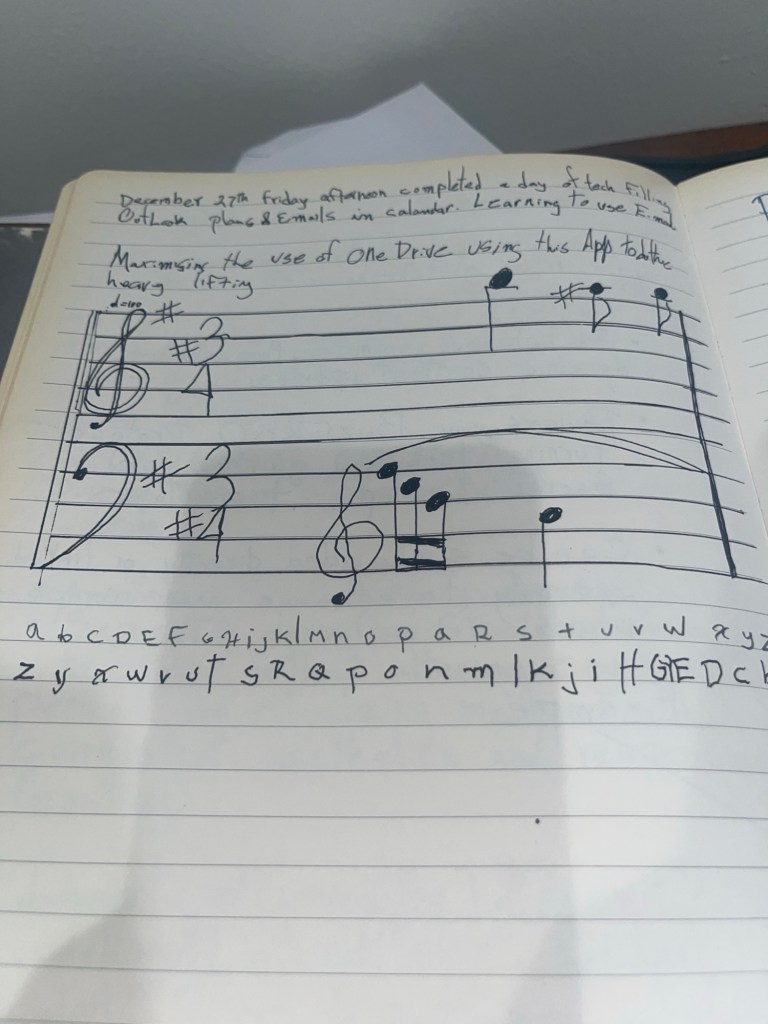 December 27th Friday afternoon completed a day of tech Filling
OutLook plans & Emails in calandar. Learning to use E.mail
Maximising the use of One Drive using this App to do the
heavy lifting
# 3
# 4
# 3
# 4
#
a b C D E F G H i j K l M n o p a R s t u v W x y z
z y x w v u t s R Q p o n m l K j i H G F E D C b